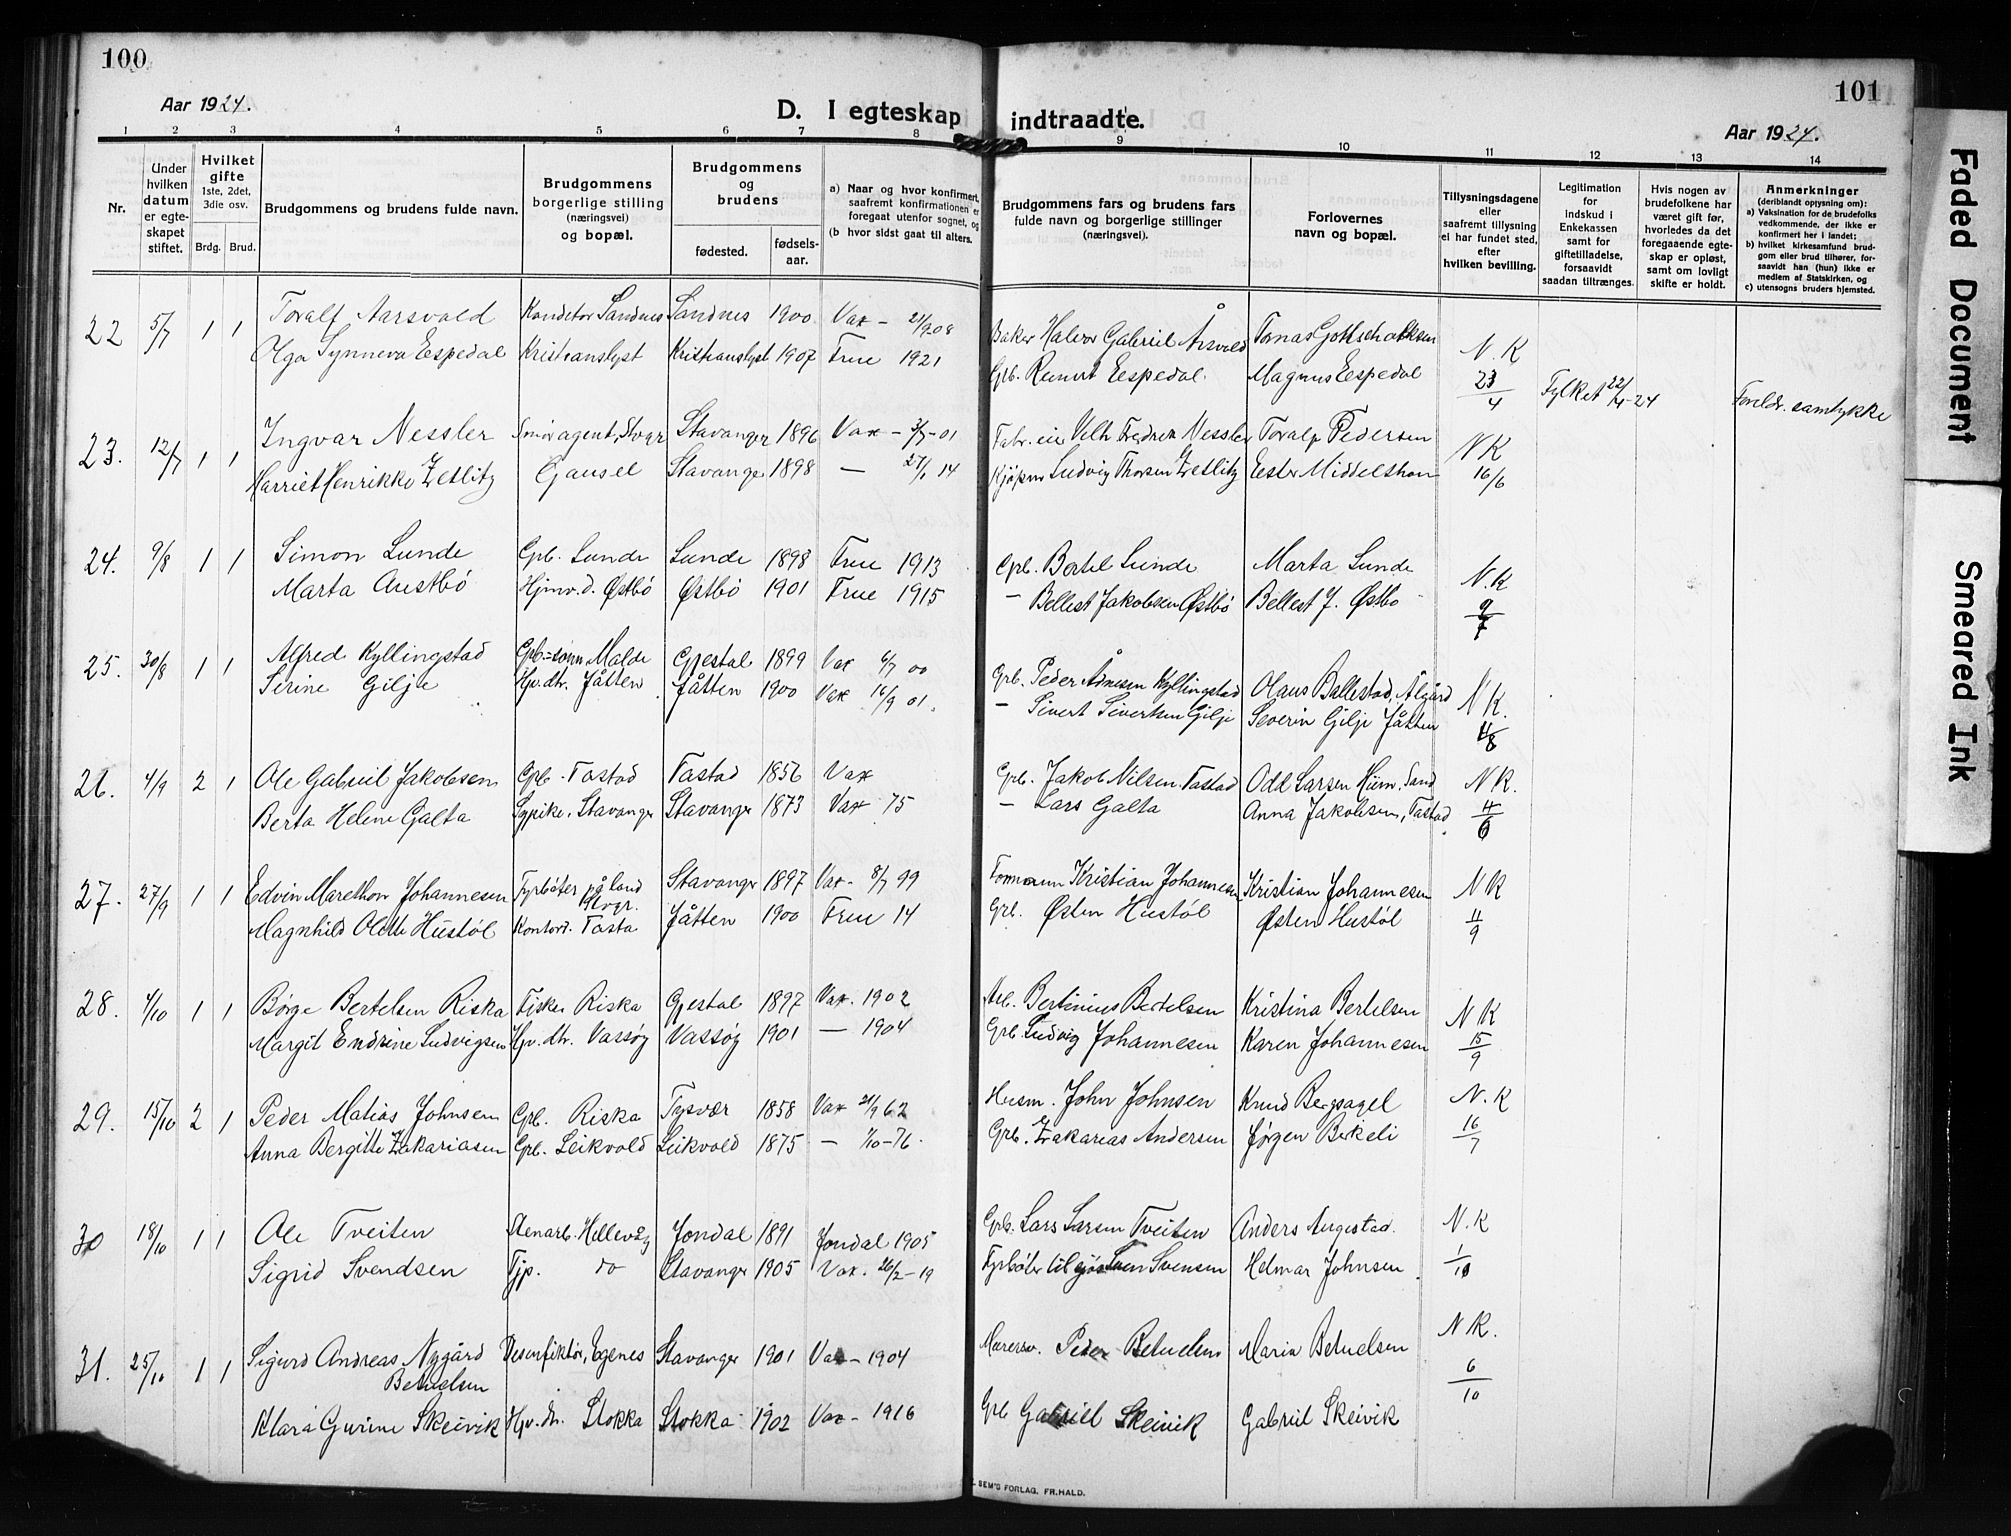 100
101
Aar 1924.
D. I egteskap indtraadte.
Aar 1924.
1 2 3 4 5 6 7 8 9 10 11 12 13 14
Nr.
Under hvilken datum er egteskapet stiftet.
Hvilket gifte 1ste, 2det, 3die osv.
Brdg. Brud.
Brudgommens og brudens fulde navn.
Brudgommens borgerlige stilling (næringsvei) og bopæl.
Brudgommens og brudens
fødested. fødsels-aar.
a) Naar og hvor konfirmert, saafremt konfirmationen er foregaat utenfor sognet, og
(b hvor sidst gaat til alters.
Brudgommens fars og brudens fars fulde navn og borgerlige stillinger (næringsvei).
Forlovernes navn og bopæl.
Tillysningsdagene eller saafremt tillysning ei har fundet sted, efter hvilken bevilling.
Legitimation for indskud i Enkekassen samt for giftetilladelse, forsaavidt saadan tiltrænges.
Hvis nogen av brudefolkene har været gift før, hvorledes da det foregaaende egteskap er opløst, samt om lovligt skifte er holdt.
Anmerkninger (deriblandt opjysning om):
a) Vaksination for de brudefolks vedkommende, der ikke er konfirmert her i landet;
b) hvilket kirkesamfund brudgom eller brud tilhører, forsaavidt han (hun) ikke er medlem af Statskirken, og
c) utensogns bruders hjemsted.
22 5/7 1 1 Toralf Aarsvold Konditor Sandnes Sandnes 1900 Vax - 21/9 08 Baker Halvor Gabriel Årsvold Tomas Gottschalksen N.K
Olga Synneva Espedal Kristianslyst Kristianslyst 1907 Frue 1921 Grb. Reinert Espedal. Magnus Espedal 23/4 Fylket 22/4-24 Foreldr. samtykke
23. 12/7 1 1 Ingvar Nessler Smøragent, Stvgr Stavanger 1896 Vax - 3/7-01 Fabr.eier Vilh Fredrik Nessler Toralf Pedersen N K
Harriet Henrikke Zetlitz Gausel Stavanger 1898 — 27/1 14 Kjøpm Ludvig Thorsen Zetlitz Ester Middelthon 16/6
24. 9/8 1 1 Simon Lunde Gpb. Lunde Lunde 1898 Frue 1913 Gpb. Bertel Lunde Marta Lunde N.K
Marta Austbö Hjmv.d. Østbö Østbö 1901 Frue 1915 - Bellest Jakobsen Østbö Bellest J. Østbö 9/7
25. 30/8 1 1 Alfred Kyllingstad Gpb.=sønn Malde Gjestal 1899 Vax 6/7 00 Grb. Peder Ådnesen Kyllingstad Olaus Ballestad, Ålgård N K.
Serine Gilje Hv.dtr. Jåtten Jåtten 1900 Vax 16/9 01. - Sivert Sivertsen Gilje Severin Gilje Jåtten 11/8
26. 4/9 2 1 Ole Gabriel Jakobsen Gpb. Tastad Tastad 1856 Vax Grb. Jakob Nilsen Tastad Odd Larsen Hiim. Sand N K.
Berta Helene Galta Sypike. Stavanger Stavanger 1873 Vax 75 - Lars Galta Anna Jakobsen, Tastad 4/6
27. 27/9 1 1 Edvin Marethon Johannesen Fyrbøter på land Stvgr. Stavanger 1897 Vax- 8/7 99 Formann Kristian Johannesen Kristian Johannesen N K
Magnhild Olette Hustöl Kontord. Tasta Jåtten 1900 Frue 14 Grb. Østen Hustöl Østen Hustöl 11/9
28. 4/10 1 1 Børge Bertelsen Riska Fisker Riska Gjestal 1897 Vax. 1902 Arb. Bertinius Bertelsen Kristina Bertelsen N K
Margit Endrine Ludvigsen Hv. dtr. Vassøy Vassøy 1901 — 1904 Grb. Ludvig Johannesen Karen Johannesen 15/9
29. 15/10 2 1 Peder Matias Johnsen Gpb. Riska Tysvær 1858 Vax 21/9 62 Husm. John Johnsen Knud Bergsagel N.K
Anna Bergitte Zakariasen Grb. Leikvold Leikvold 1875 — 1/10-76. Grb. Zakarias Andersen Jørgen Birkeli 16/7
30 18/10 1 1 Ole Tveiten Stenarb. Hillevåg Jondal 1891 Jondal 1905 Grb. Lars Larsen Tveiten Anders Augestad. N.K
Sigrid Svendsen Tjp. do Stavanger 1905 Vax. 26/2-19 Fyrbøter til sjøs Sven Svensen Helmar Johnsen 1/10
31. 25/10 1 1 Sigurd Andreas Nygård Betuelsen Desinfiktør, Egenes Stavanger 1901 Vax- 1904 Murersv. Peder Betuelsen Maria Betuelsen N K.
Klara Gurine Skeivik Hv. dtr. Stokka Stokka 1902 Vax- 1916 Grb Gabriel Skeivik Gabriel Skeivik 6/10
SEM'S FORLAG, FR.HALD.
Faded Document
Smeared Ink